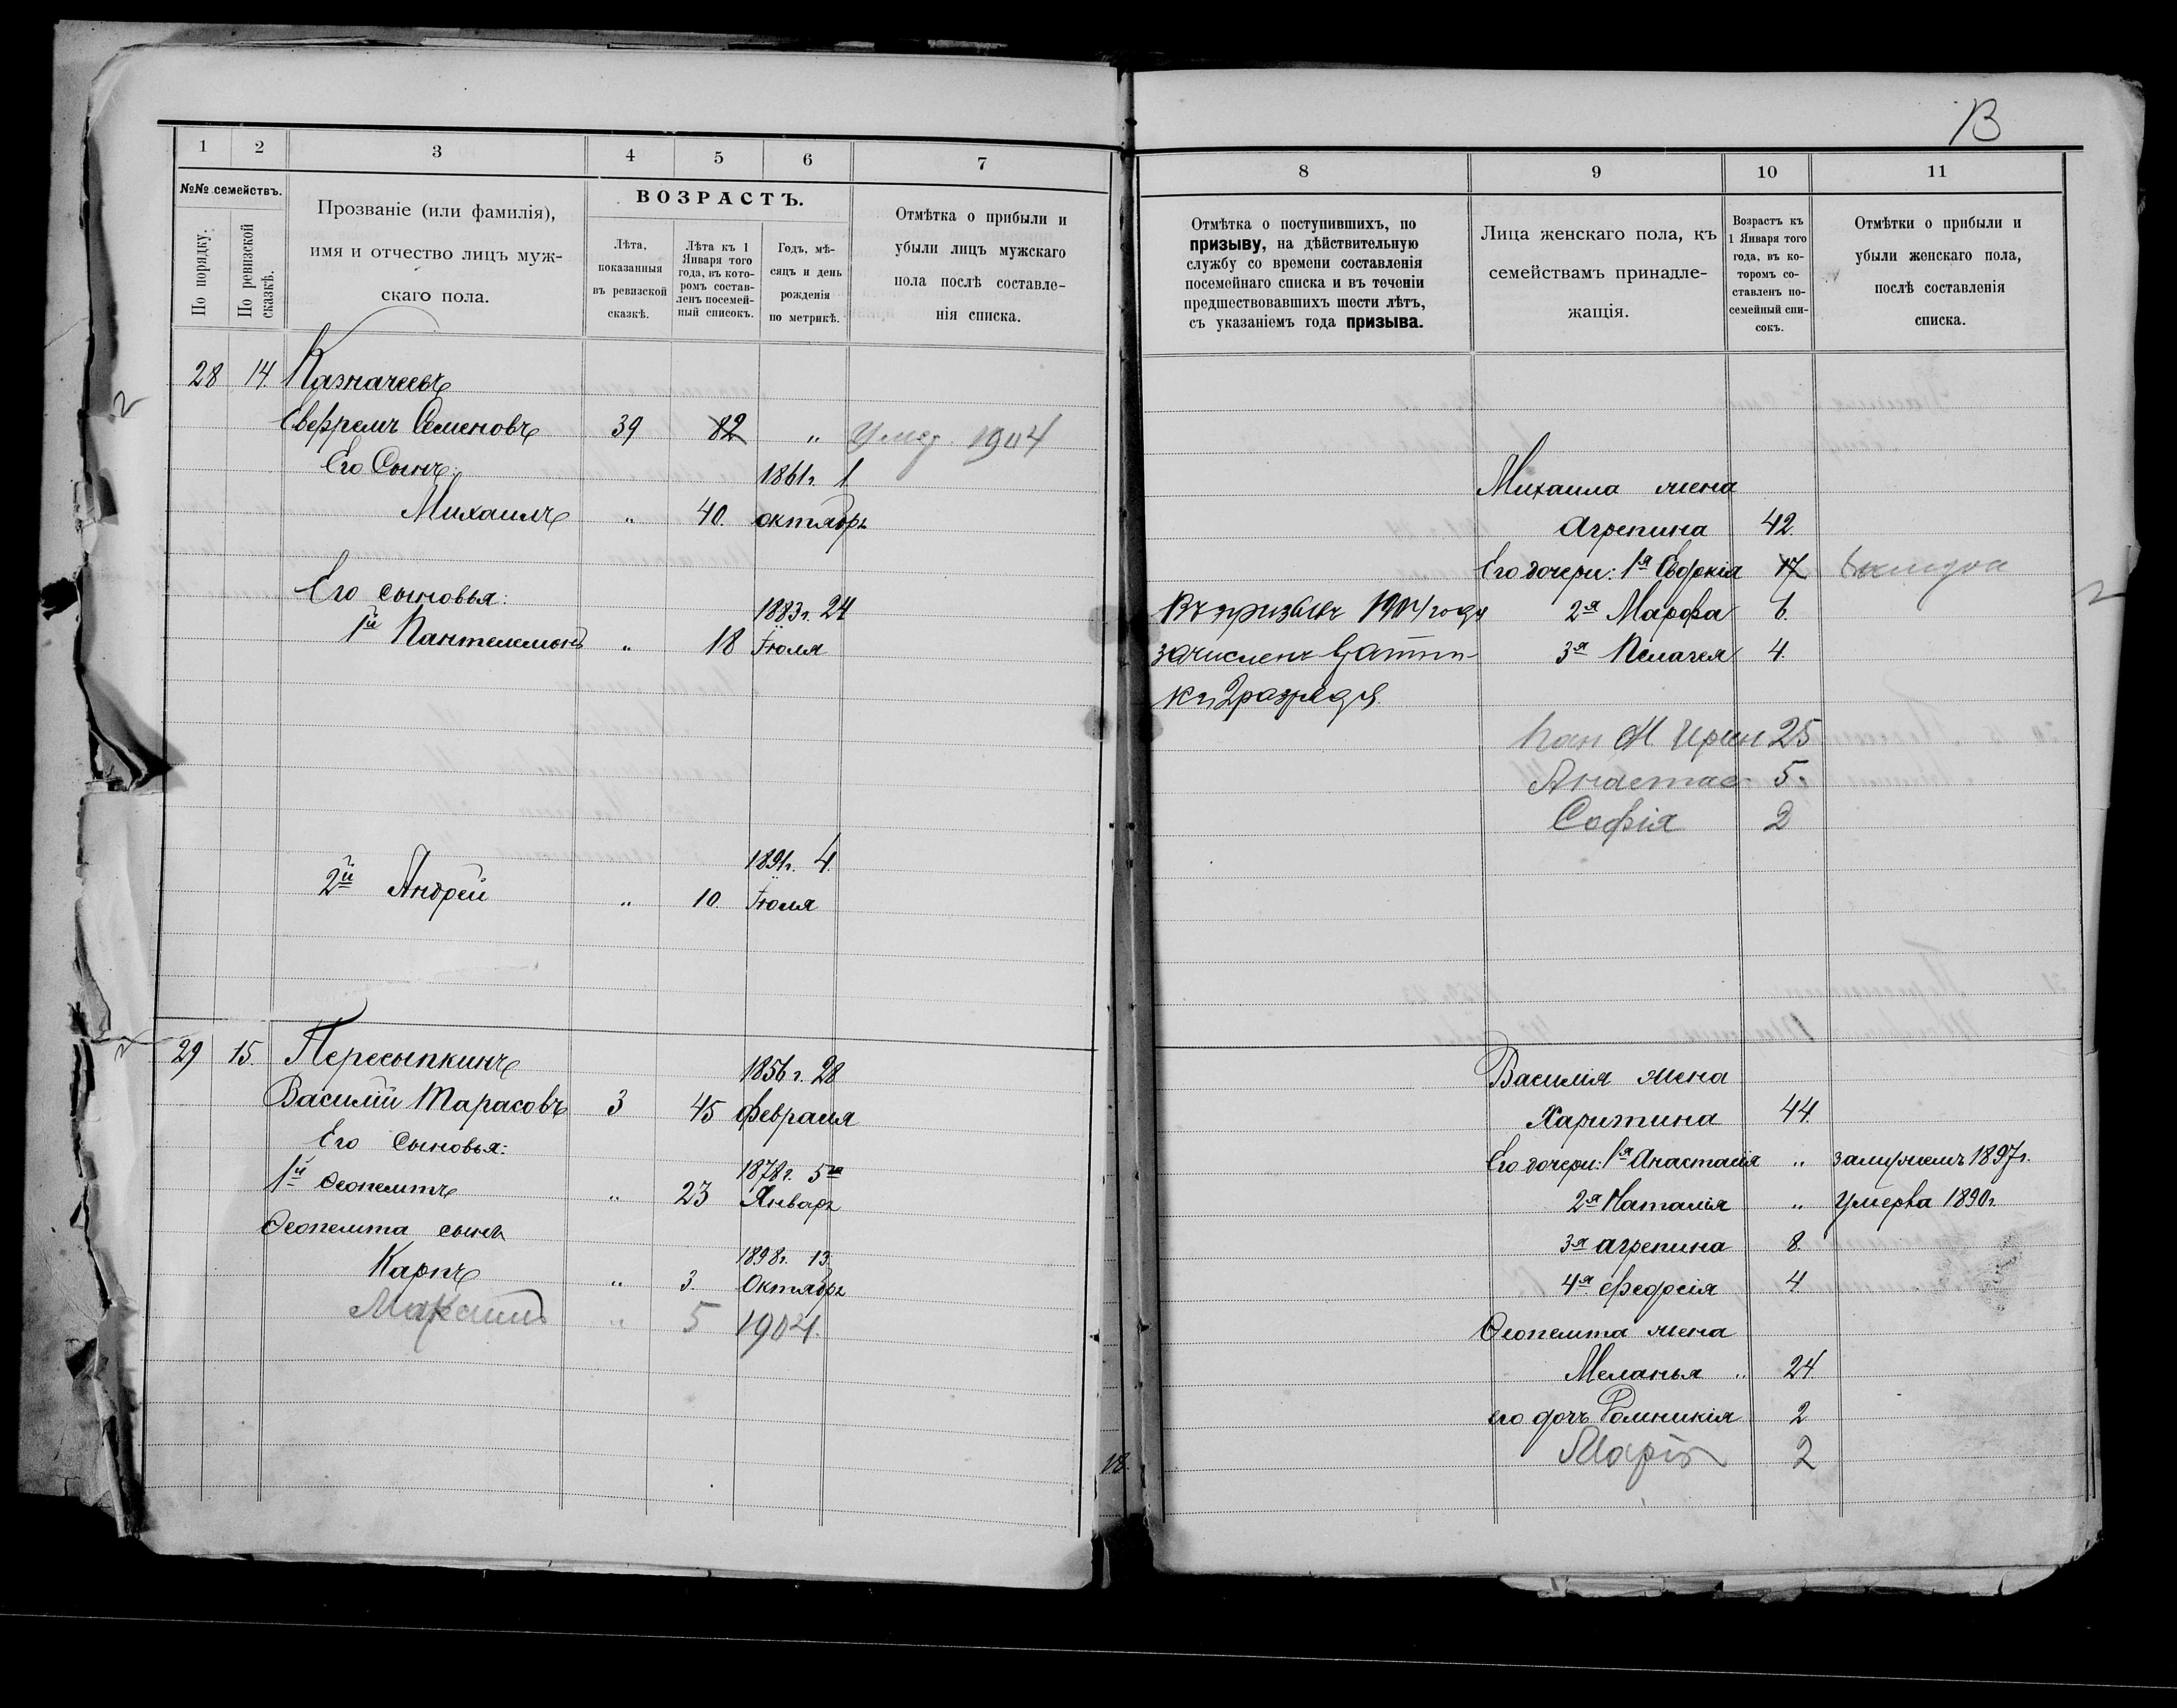 1 2 3 4 5 6 7
№№ семействъ.
По порядку.
По ревизской сказкѣ.
Прозваніе (или фамилія),
имя и отчество лицъ муж-
скаго пола.
ВОЗРАСТЪ.
Лѣта,
показанныя
въ ревизской
сказкѣ.
Лѣта къ 1
Января того
года, въ кото-
ромъ состав-
ленъ посемей-
ный списокъ.
Годъ, мѣ-
сяцъ и день
рожденія
по метрикѣ.
Отмѣтка о прибыли и
убыли лицъ мужскаго
пола послѣ составле-
нія списка.
28 14. Казначеевъ
Семеновъ 39 82 " Умер. 1904
Его Сынъ: 1861г. 1
Михаилъ " 40. октябрь
Его сыновья: 1883г. 24
1й Пантелемонъ " 18 Іюля
1891г. 4.
2й Андрей " 10. Іюля
29 15. Пересыпкинъ 1856г. 28
Василій Тарасовъ 3 45 февраля
Его Сыновья:
1878г. 5го
1й Ѳеопемптъ " 23 Январь
Ѳеопемпта сынъ
1898г. 13.
Карпъ " 3. Октябрь
Максимъ " 5 1904.
18.
8 9 10 11
Отмѣтка о поступившихъ, по
призыву, на дѣйствительную
службу со времени составленія
посемейнаго списка и въ теченіи
предшествовавшихъ шести лѣтъ,
съ указаніемъ года призыва.
Лица женскаго пола, къ
семействамъ принадле-
жащія.
Возрастъ къ
1 Января того
года, въ ко-
торомъ со-
ставленъ по-
семейный спи-
сокъ.
Отмѣтки о прибыли и
убыли женскаго пола,
послѣ составленія
списка.
Михаила жена
Агрепина 42.
Его дочери: 1я 17
Въ призывъ 1904 года 2я Марфа 6.
зачисленъ 3я Пелагея 4.
разряда
Пан Ж Ирин 25
Анастас. 5.
Софія 2
Василія жена
Харитина 44.
Его дочери: 1я Анастасія " замужемъ 1897г.
2я Наталія " умерла 1890г.
3я Агрепина 8.
4я Ефедосія 4
Ѳеопемпта жена
Меланья " 24
его дочь 2
Марія 2